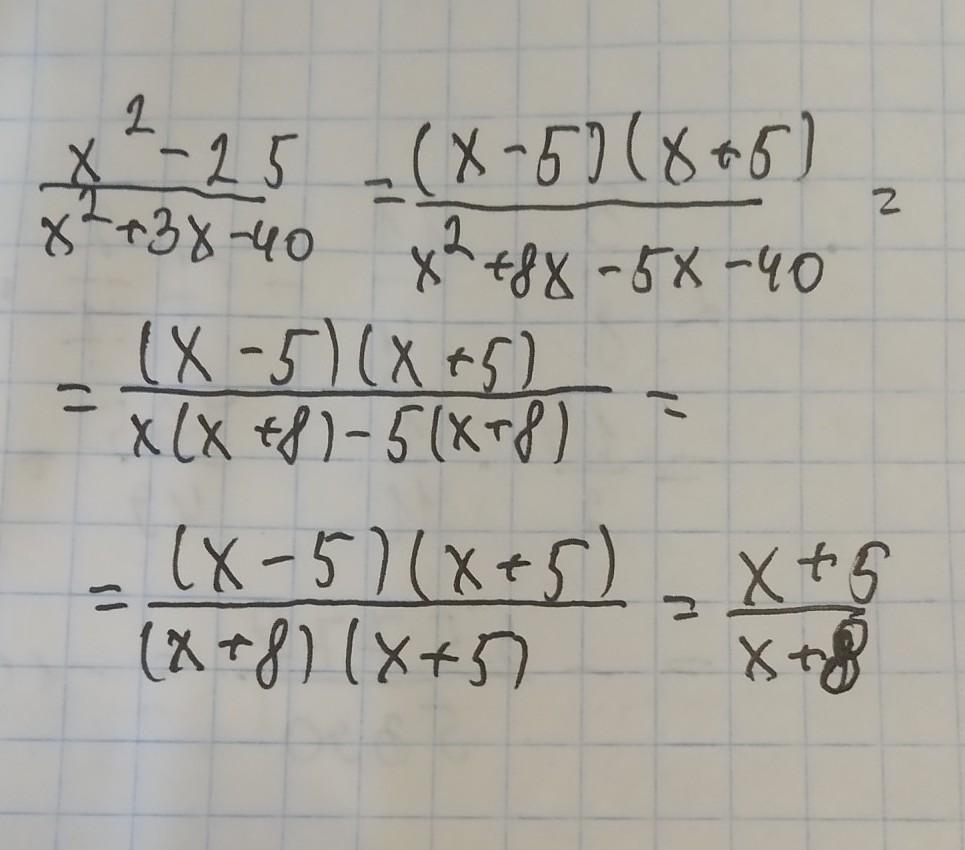 \frac{x^2-25}{x^2+3x-40} = \frac{(x-5)(x+5)}{x^2+8x-5x-40} =
= \frac{(x-5)(x+5)}{x(x+8)-5(x+8)} =
= \frac{(x-5)(x+5)}{(x+8)(x+5)} = \frac{x+5}{x+8}